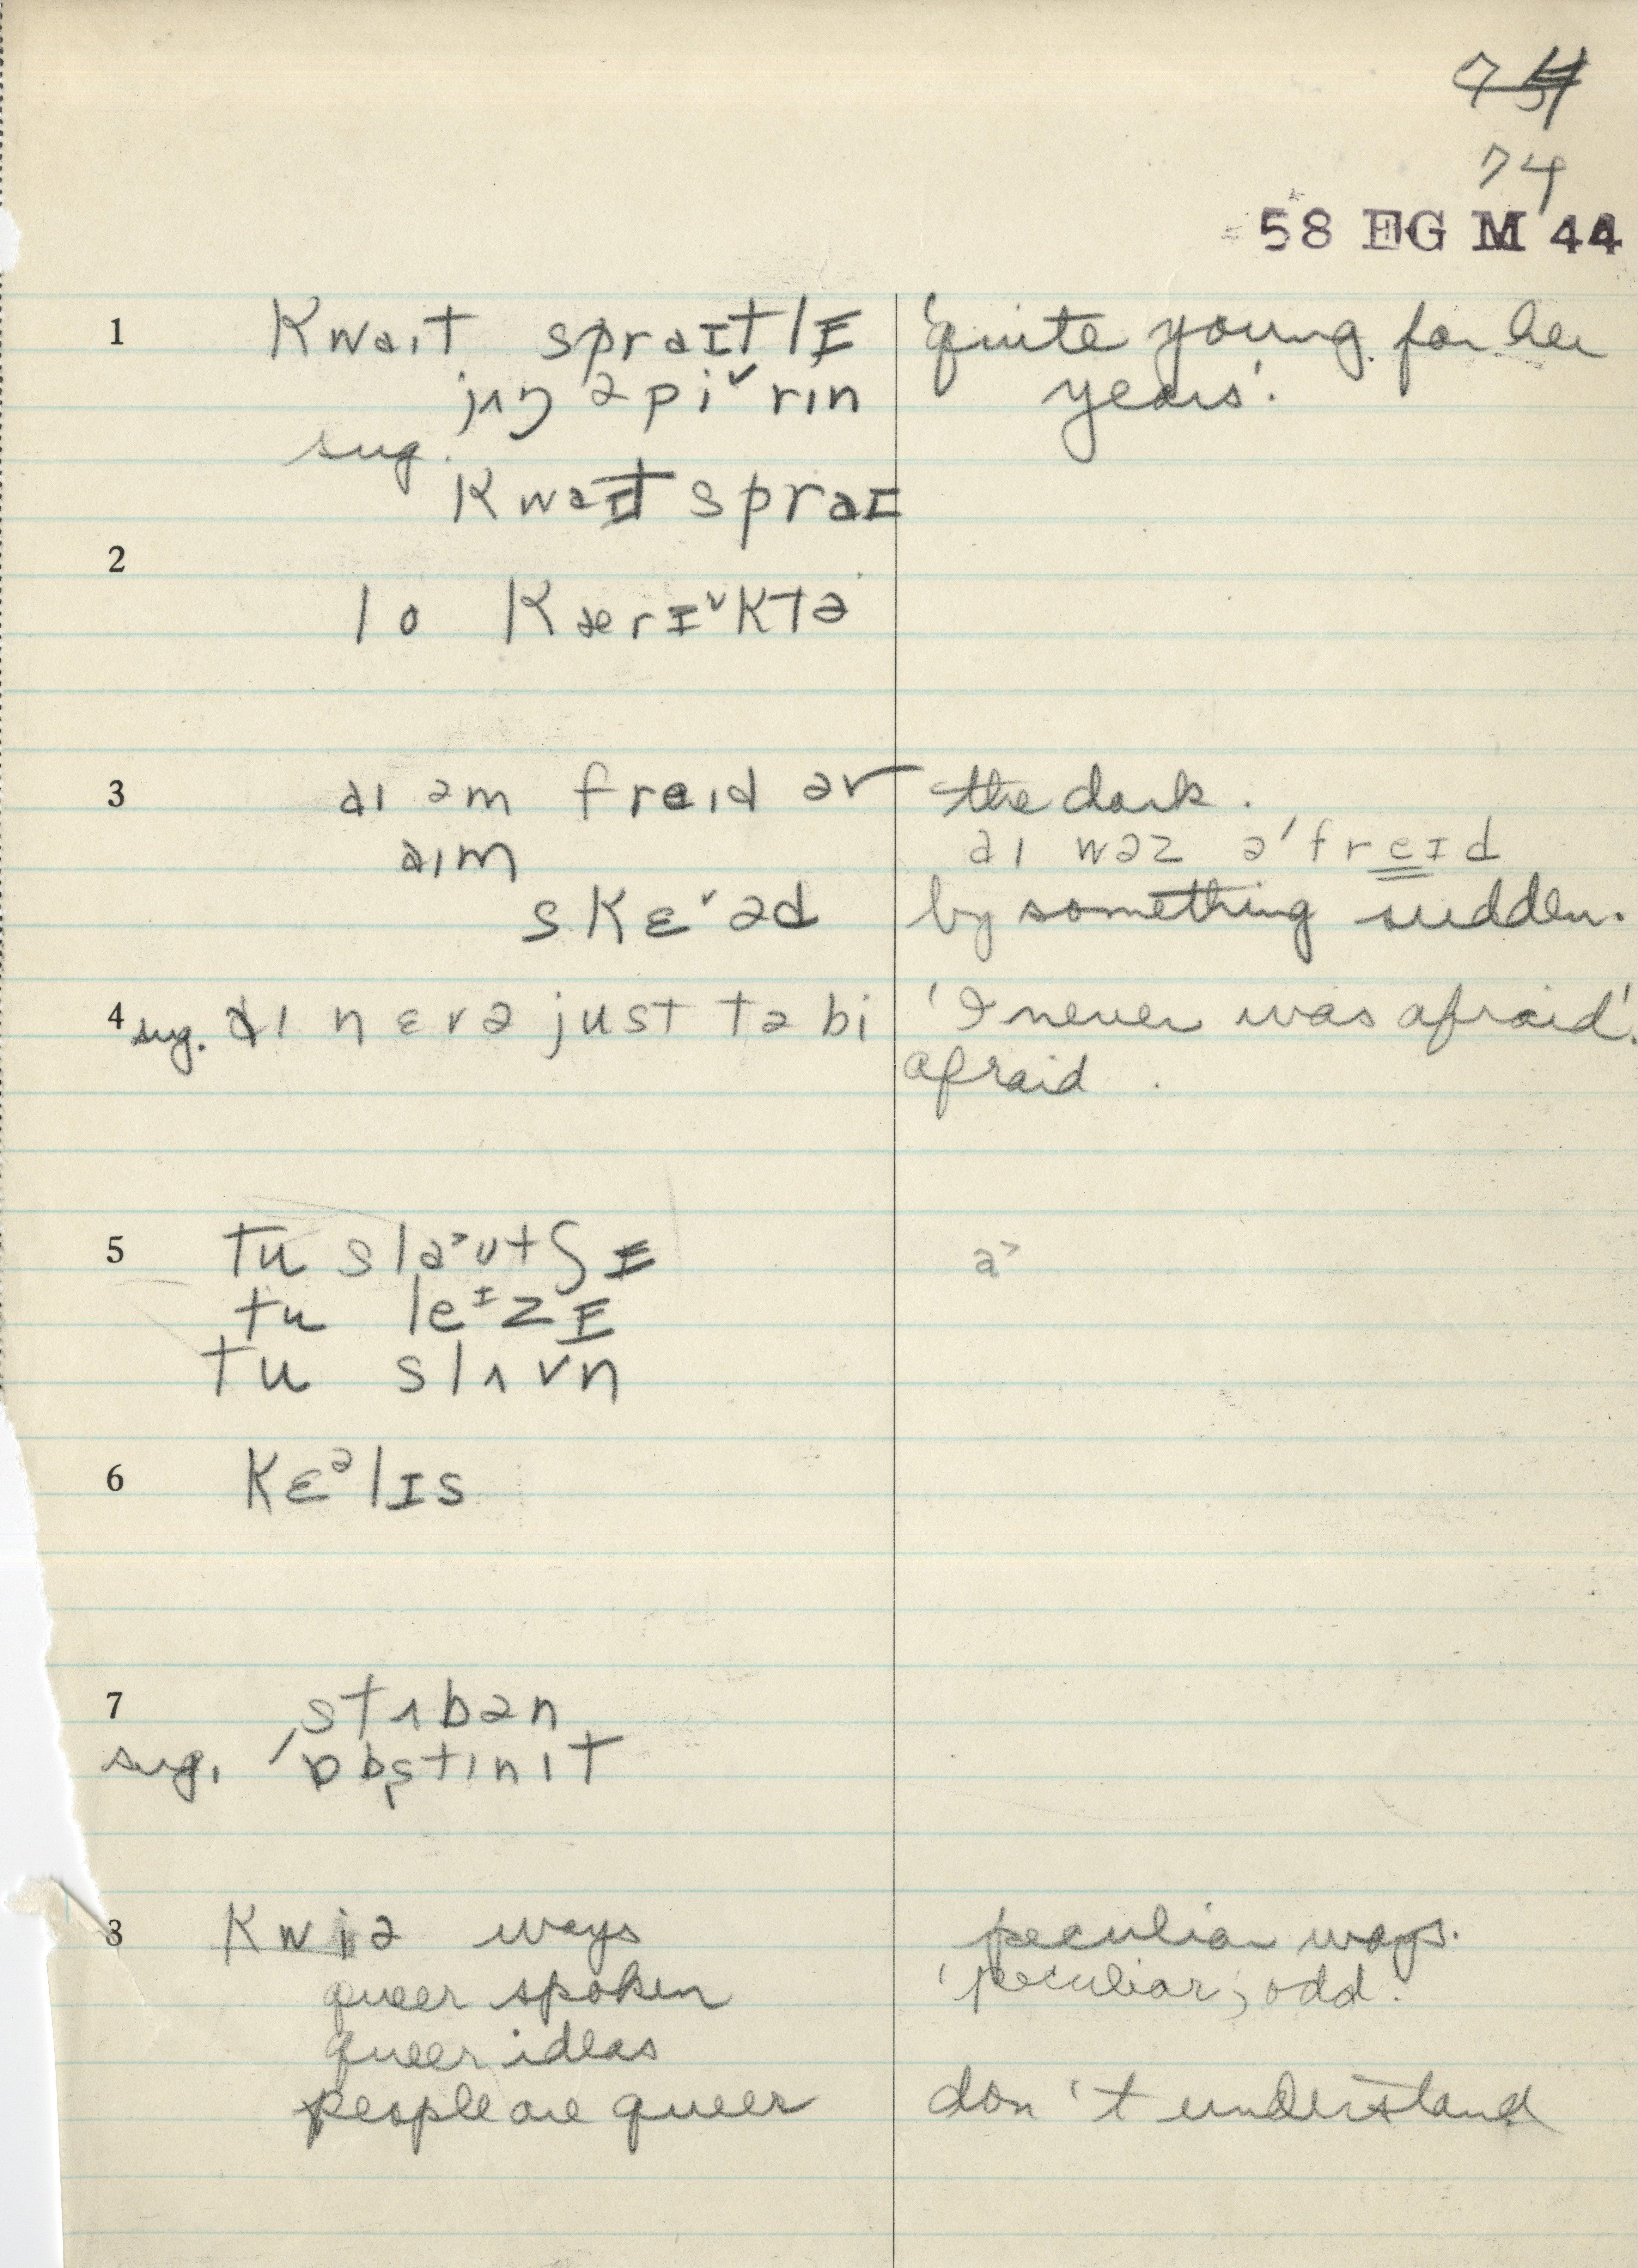 74
58 EG M 44
1 kwaɪt spraɪtlɪ 'quite young for her
jʌŋ əpiˇrɪn years'.
sug.
kwaɪt spraɪ
2
lo kærɪˇktə
3 aɪ əm freɪd əv the dark.
aɪm aɪ wəz ə'freɪd
skɛˇəd by something sudden.
4 sug. aɪ nɛvə just tə bi 'I never was afraid'.
afraid.
5 tu sla˃ʊtʃɪ a˃
tu leᶦzɪ
tu slʌvn
6 kɛᵊlɪs
7 stʌbən
sug. 'ɒbstɪnɪt
8 kwiə ways peculiar ways.
queer spoken 'peculiar; odd.'
queer ideas
people are queer don't understand